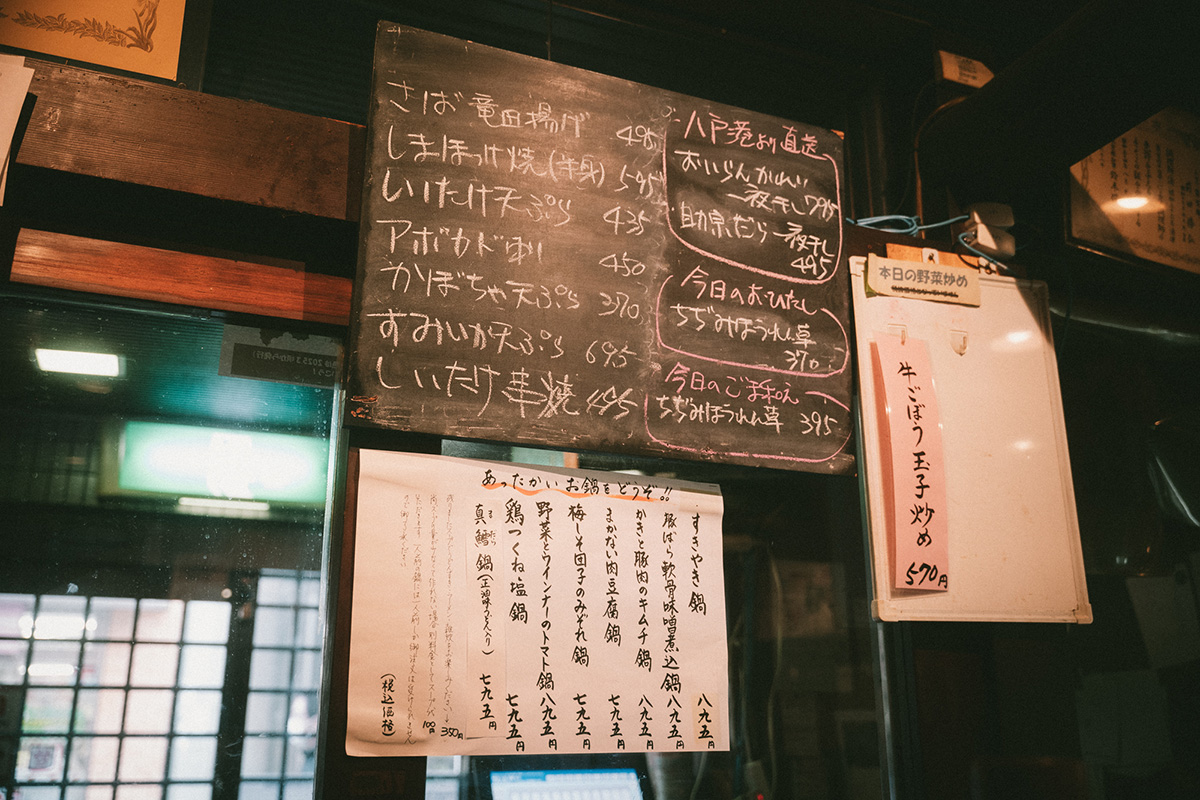 さば竜田揚げ 495
しまほっけ焼(半身) 595
いいたけ天ぷら 435
アボカド刺 450
かぼちゃ天ぷら 370
すみいか天ぷら 695
しいたけ串焼 495
八戸港より直送
おいらんかれい
一夜干し 795
助宗だら一夜干し
495
今日のおひたし
ちぢみほうれん草
370
今日のごま和え
ちぢみほうれん草 395
本日の野菜炒め
牛ごぼう玉子炒め
570円
あったかいお鍋をどうぞ!!
すきやき鍋 八九五円
豚ばら軟骨味噌煮込鍋 八九五円
かきと豚肉のキムチ鍋 八九五円
まかない肉豆腐鍋 七九五円
梅しそ団子のみぞれ鍋 七九五円
野菜とウインナーのトマト鍋 八九五円
鶏つくね塩鍋 七九五円
真鱈鍋 七九五円
350円
100円
(税込価格)